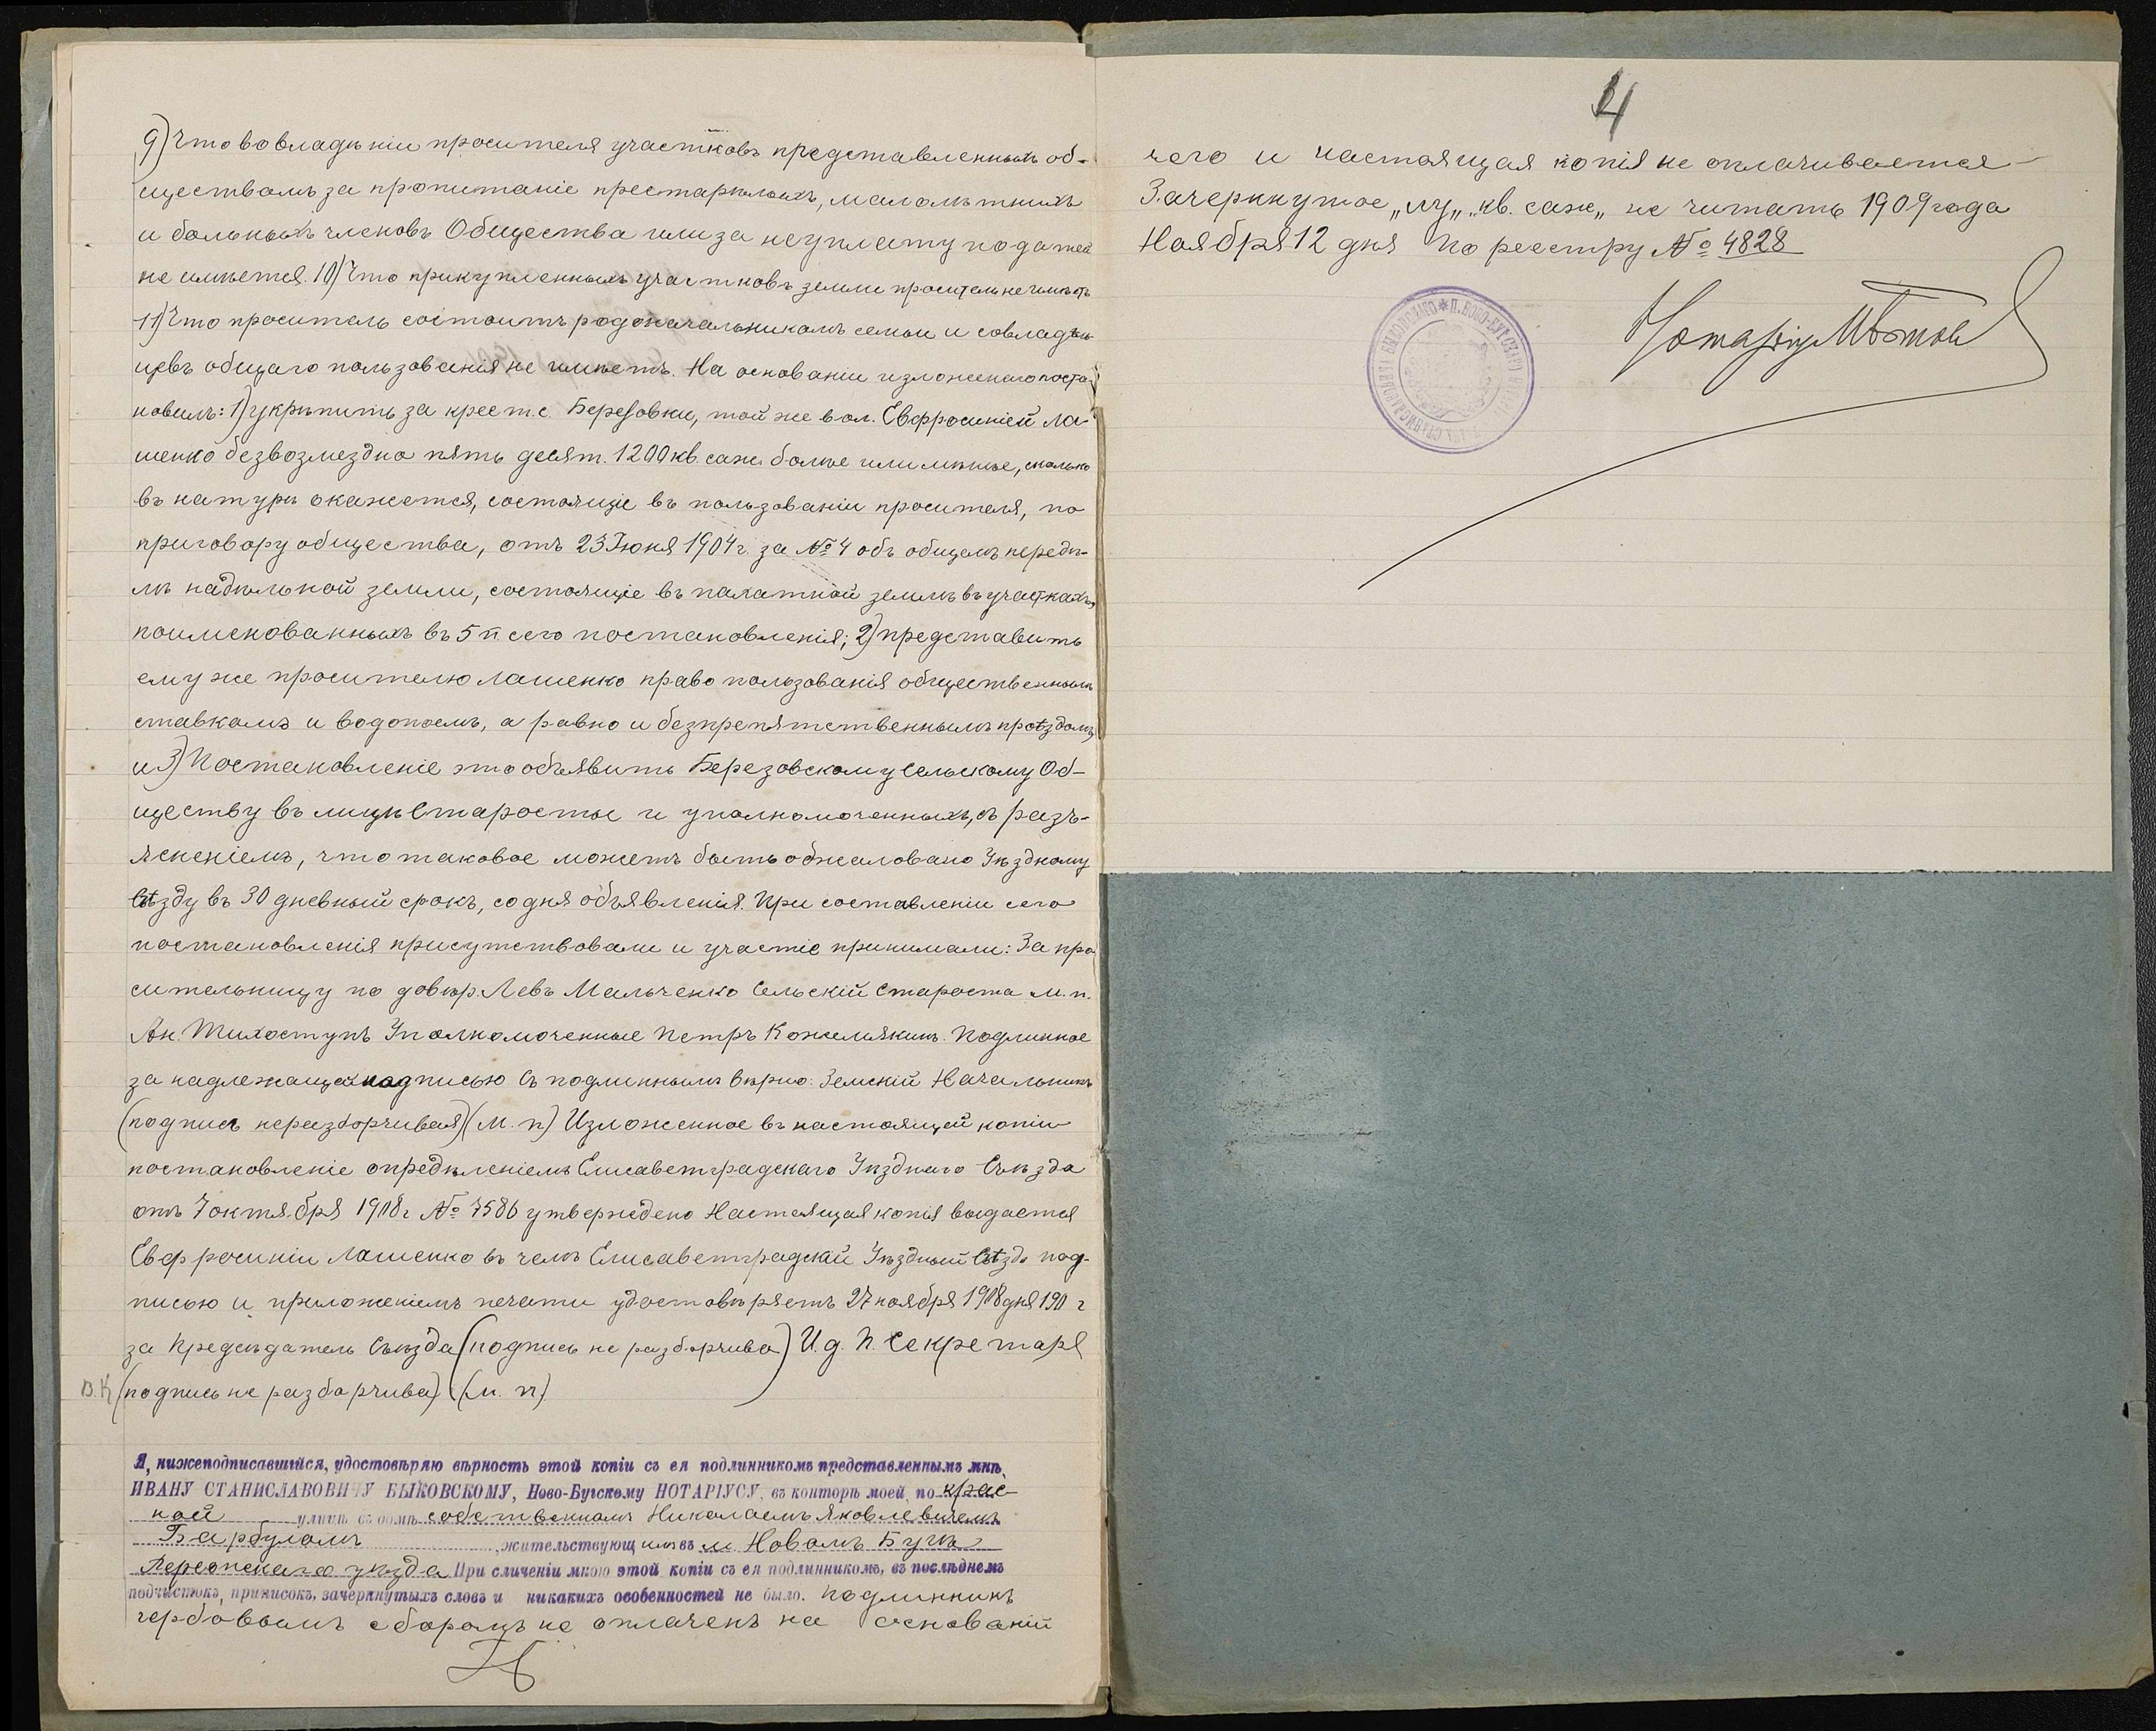 9) Что во владѣніи просителя участковъ представленныхъ об-
ществомъ за пропитаніе престарѣлыхъ, малолѣтнихъ
и больныхъ членовъ Общества или за неуплату податей
не имѣется. 10) Что прикупленныхъ участковъ земли проситель не имѣетъ
11) Что проситель состоитъ родоначальникомъ семьи и совладѣль-
цевъ общаго пользованія не имѣетъ. На основаніи изложеннаго поста-
новилъ: 1) укрѣпить за крест. с. Березовки, той же вол. Евфросиніей Ла-
шенко безвозмездно пять десят. 1200 кв. саж. болѣе или мѣнѣе, сколько
въ натурѣ окажется, состоящіе въ пользованіи просителя, по
приговору общества, отъ 23 Іюня 1904 г. за № 4 объ общемъ передѣ-
лѣ надѣльной земли, состоящіе въ пахатной землѣ въ участкахъ,
поименованныхъ въ 5 п сего постановленія; 2) представить
ему же просителю Лашенко право пользованія общественнымъ
ставкомъ и водопоемъ, а равно и безпрепятственнымъ проѣздомъ
и 3) Постановленіе это объявить Березовскому Сельскому Об-
ществу въ лицѣ Старосты и уполномоченныхъ, съ разъ-
ясненіемъ, что таковое можетъ быть обжаловано Уѣздному
Съѣзду въ 30 дневный срокъ, со дня объявленія. При составленіи сего
постановленія присутствовали и участіе принимали: За про
сительницу по довѣр. Левъ Мальченко Сельскій Староста м. п.
Ан. Тихоступъ Уполномоченные Петръ Кожемякинъ. Подлинное
за надлежащей надписью Съ подлиннымъ вѣрно: Земскій Начальникъ
(подпись неразборчивая) (М. п) Изложенное въ настоящей копіи
постановленіе опредѣленіемъ Елисаветградскаго Уѣзднаго Съѣзда
отъ 7 октября 1908 г № 7586 утверждено Настоящая копія выдается
Евфросиніи Лашенко въ чемъ Елисаветградскій Уѣздный Съѣздъ под-
писью и приложеніемъ печати удостовѣряетъ 27 ноября 1908 дня 190 г
за Предсѣдатель Съѣзда (подпись не разборчива) И. д. П. Секретаря
В. К (подпись не разборчива) (м. п)
Я, нижеподписавшійся, удостовѣряю вѣрность этой копіи съ ея подлинникомъ представленнымъ мнѣ,
ИВАНУ СТАНИСЛАВОВИЧУ БЫКОВСКОМУ, Ново-Бугскому НОТАРІУСУ, въ конторѣ моей, по крас-
ной улицѣ въ домѣ собственномъ Николаемъ Яковлевичемъ
Барбуломъ, жительствующимъ въ м Новомъ Бугѣ
Херсонскаго уѣзда При сличеніи мною этой копіи съ ея подлинникомъ, въ послѣднемъ
подчистокъ, приписокъ, зачеркнутыхъ словъ и никакихъ особенностей не было. Подлинникъ
гербовымъ сборомъ не оплаченъ на основаній
4
чего и настоящая копія не оплачивается
Зачеркнутое „лу„ „кв. саж„ не читать 1909 года
Ноября 12 дня По реестру № 4828
Нотаріусъ